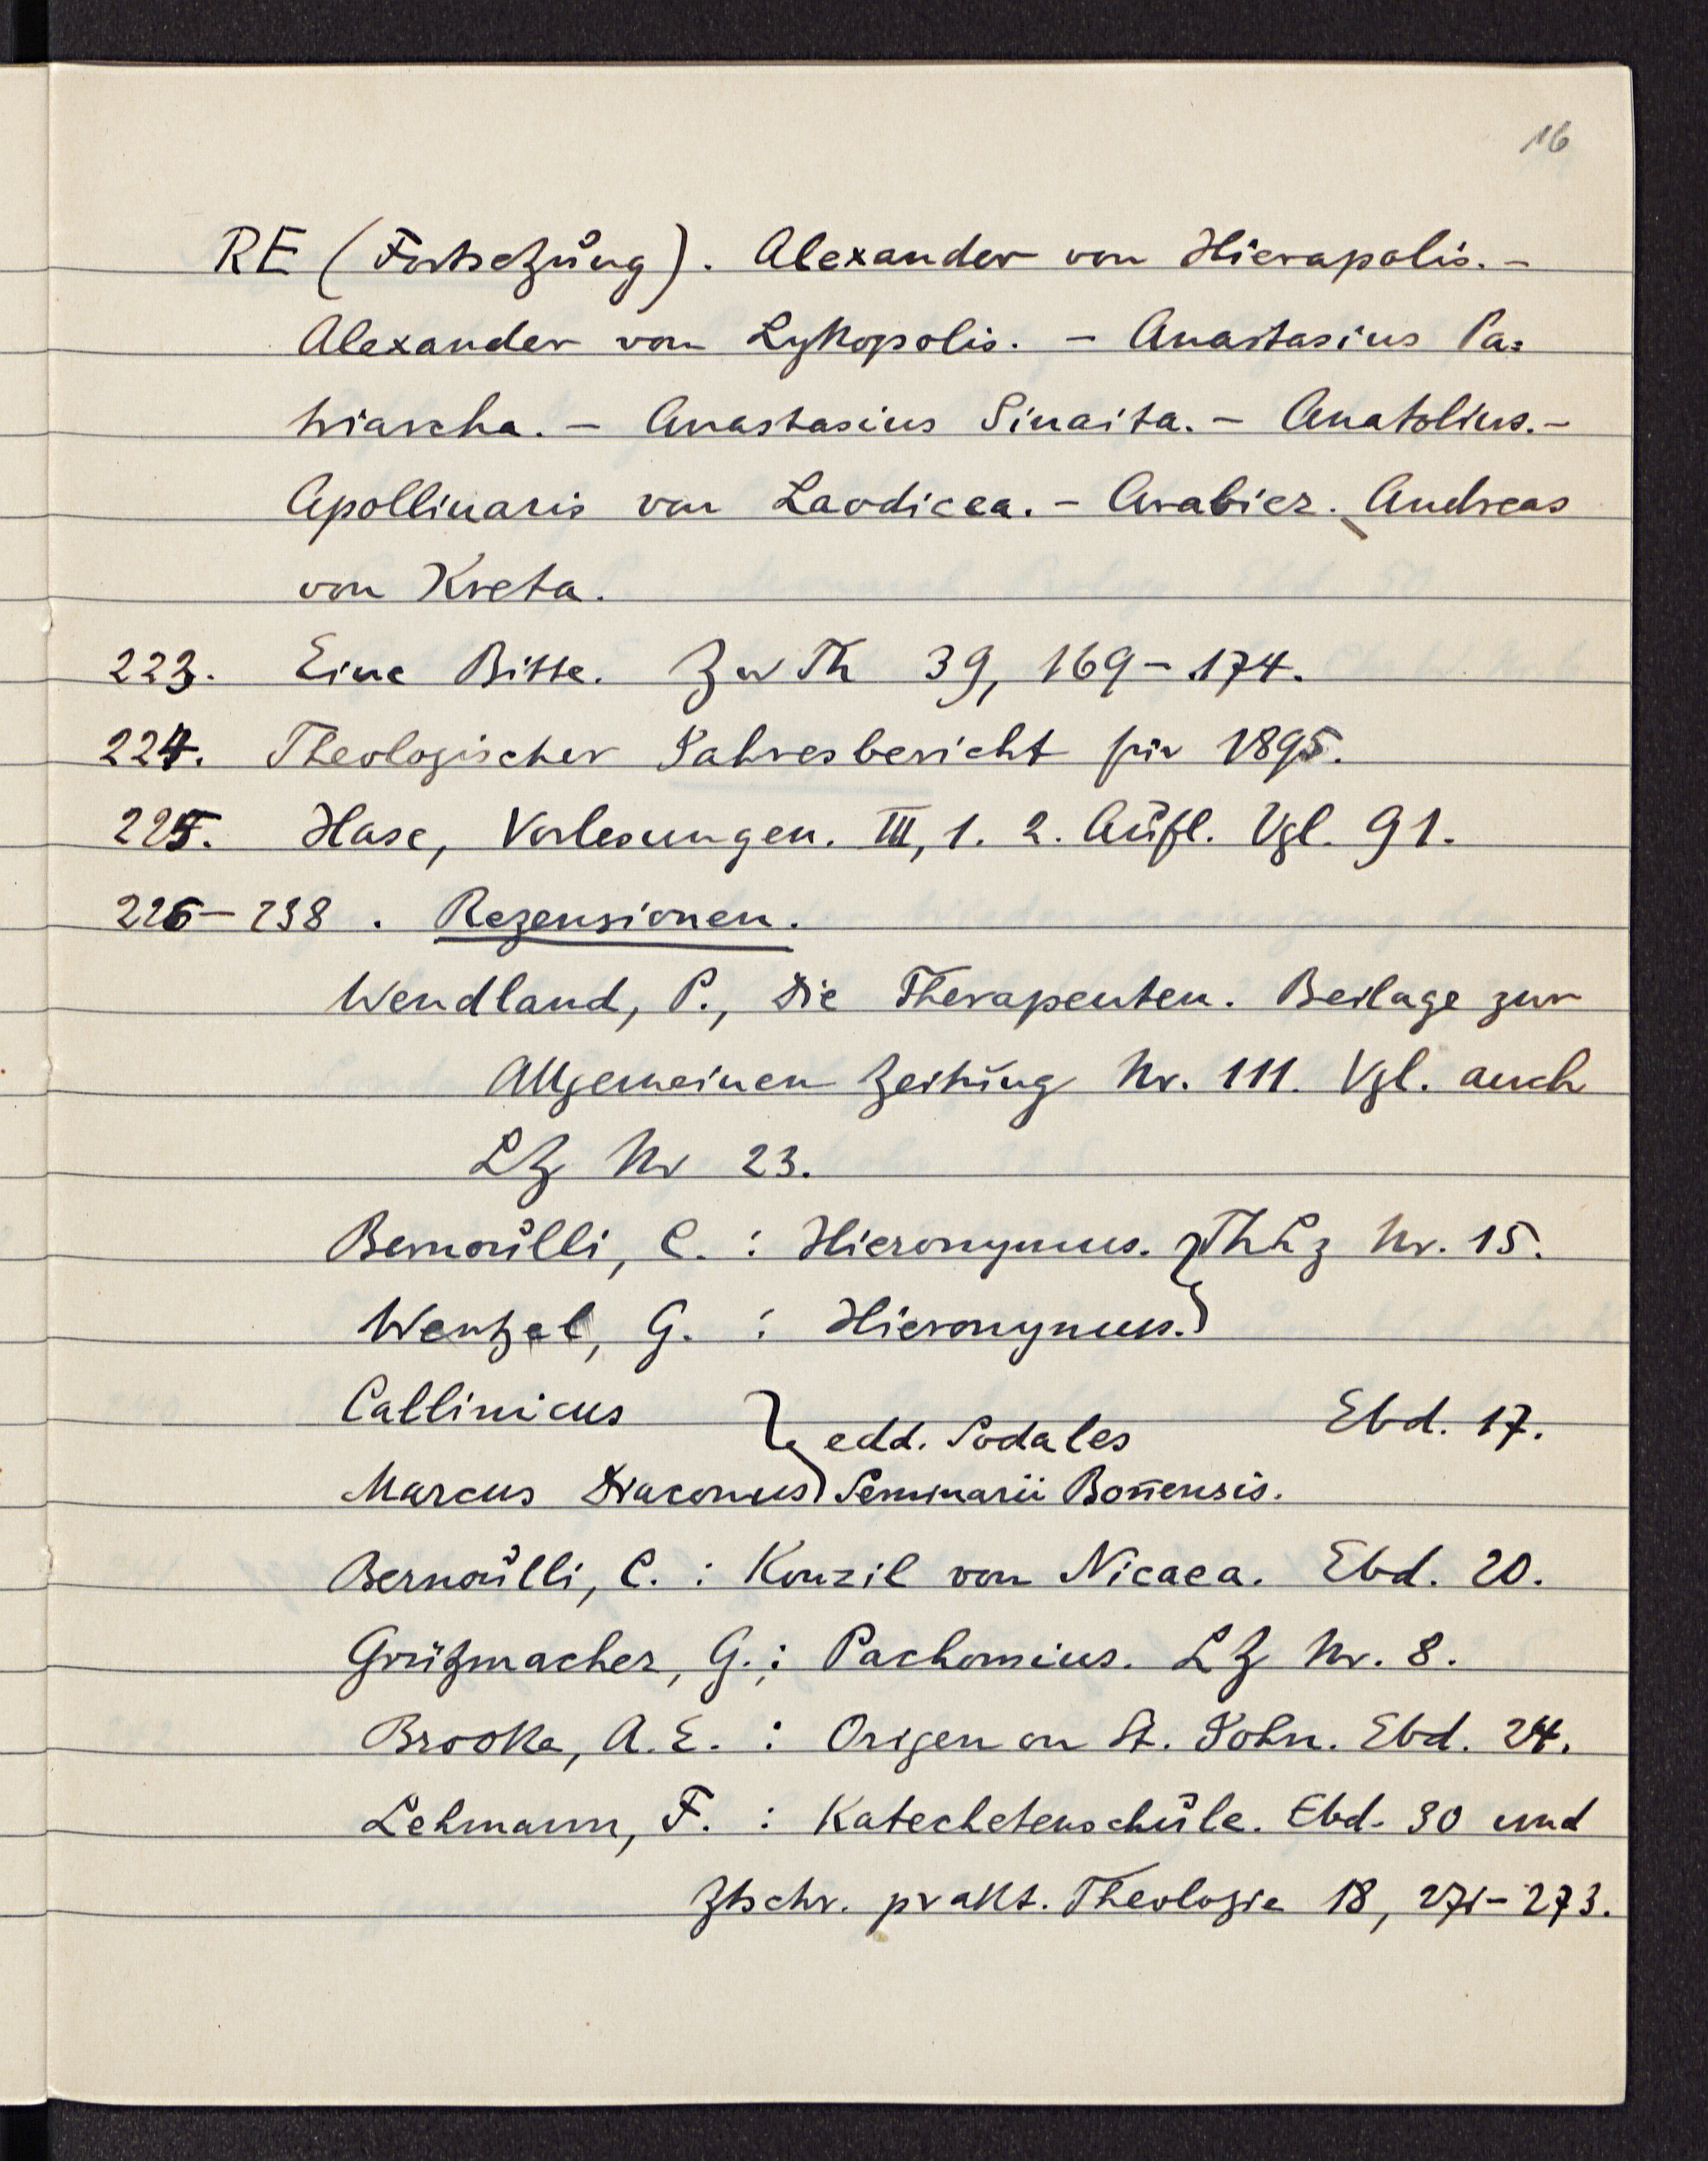 16
RE (Fortsetzung). Alexander von Hierapolis. -
Alexander von Lykopolis. - Anastasius Pa=
triarcha. - Anastasius Sinaita. - Anatolius. -
Apollinaris von Laodicea. - Arabier. Andreas
von Kreta.
223. Eine Bitte. ZwTh 39, 169-174.
224. Theologischer Jahresbericht für 1895.
225. Hase, Vorlesungen. III, 1. 2. Aufl. Vgl. 91.
226-238. Rezensionen.
Wendland, P., Die Therapeuten. Beilage zur
Allgemeinen Zeitung Nr. 111. Vgl. auch
LZ Nr 23.
Bernoulli, C. : Hieronymus. } ThLz Nr. 15.
Wentzel, G. : Hieronymus.
Callinicus } edd. Sodales Ebd. 17.
Marcus Diaconus Seminarii Bon̄ensis.
Bernoulli, C. : Konzil von Nicaea. Ebd. 20.
Grützmacher, G. : Pachomius. LZ Nr. 8.
Brooke, A. E. : Origen on St. John. Ebd. 24.
Lehmann, F. : Katechetenschule. Ebd. 30 und
Ztschr. prakt. Theologie 18, 271-273.